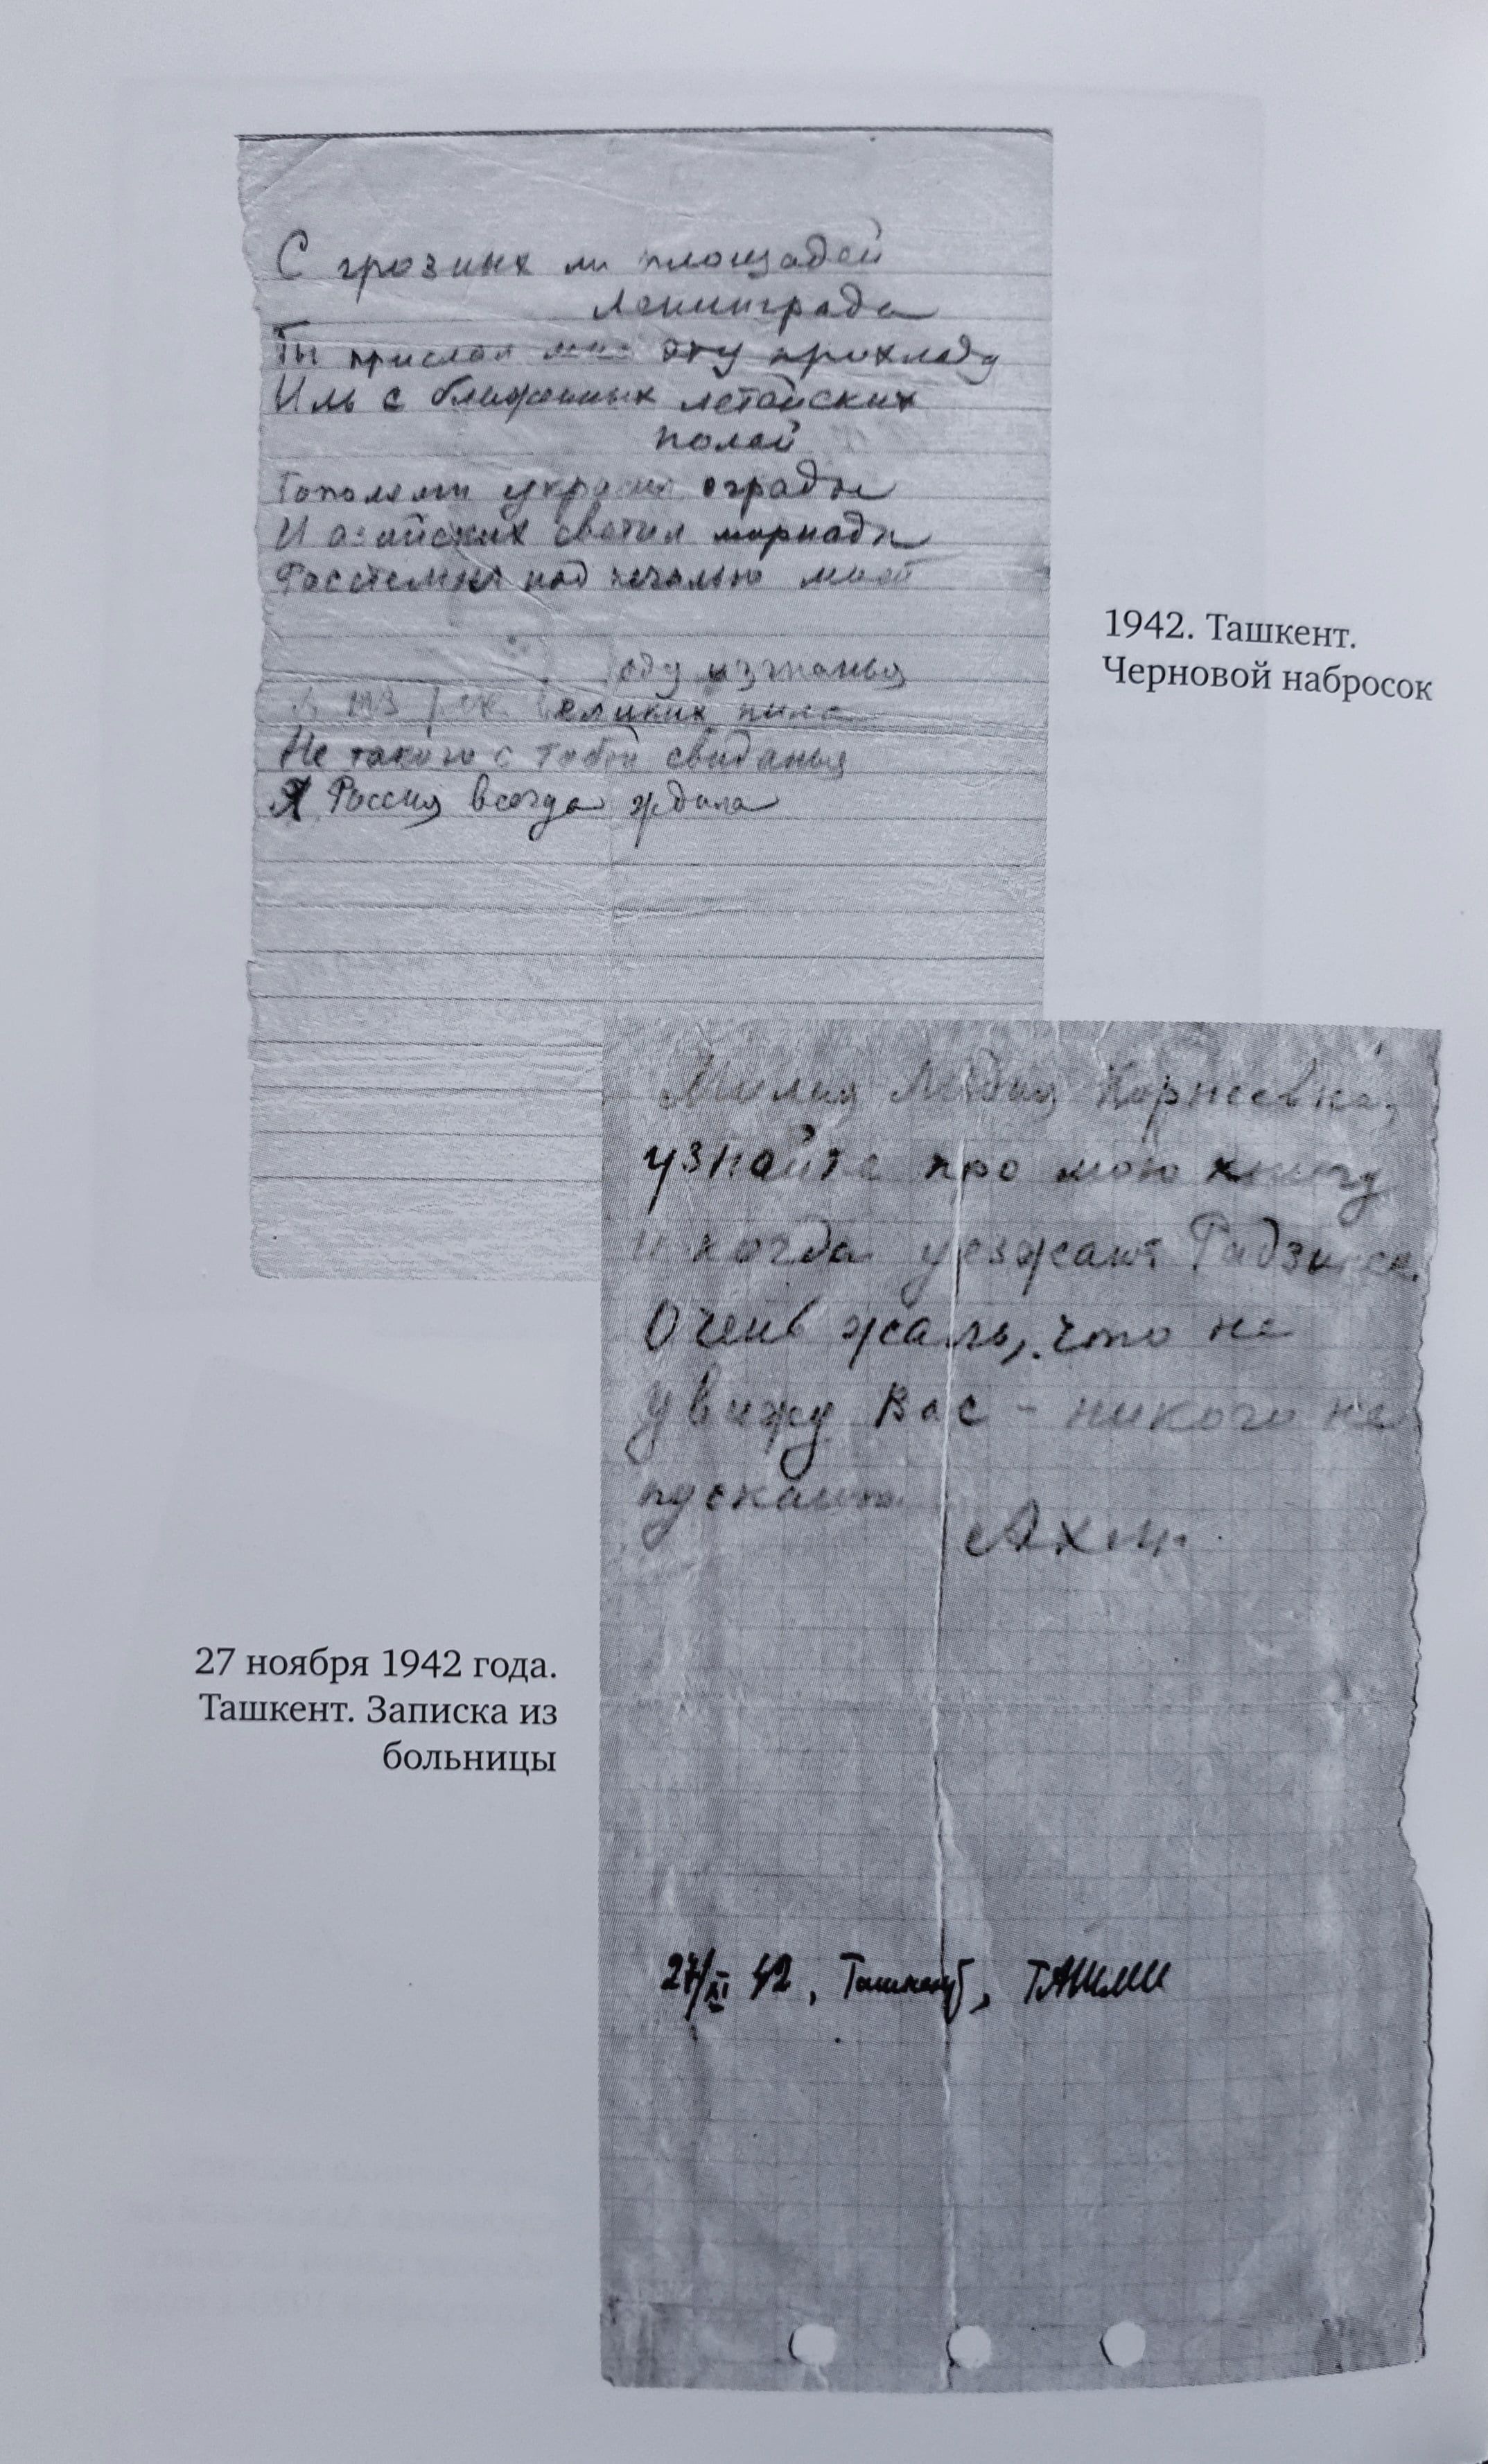 С грозных ли площадей
Ленинграда
Ты прислал мне эту прохладу
Иль с блаженных летейских
полей
Тополями украсил ограды
И азийских светил мириады
Расстелил над печалью моей
году изгнанья
великих
Не такого с тобой свиданья
Я Россия всегда ждала
1942. Ташкент.
Черновой набросок
Милая Лидия Корнеевна,
узнайте про мою книгу
и когда уезжают Радзинск.
Очень жаль, что не
увижу Вас – никого не
пускают.
Ахм.
27 ноября 1942 года.
Ташкент. Записка из
больницы
27/XI 42, Ташкент, ТАШМИ